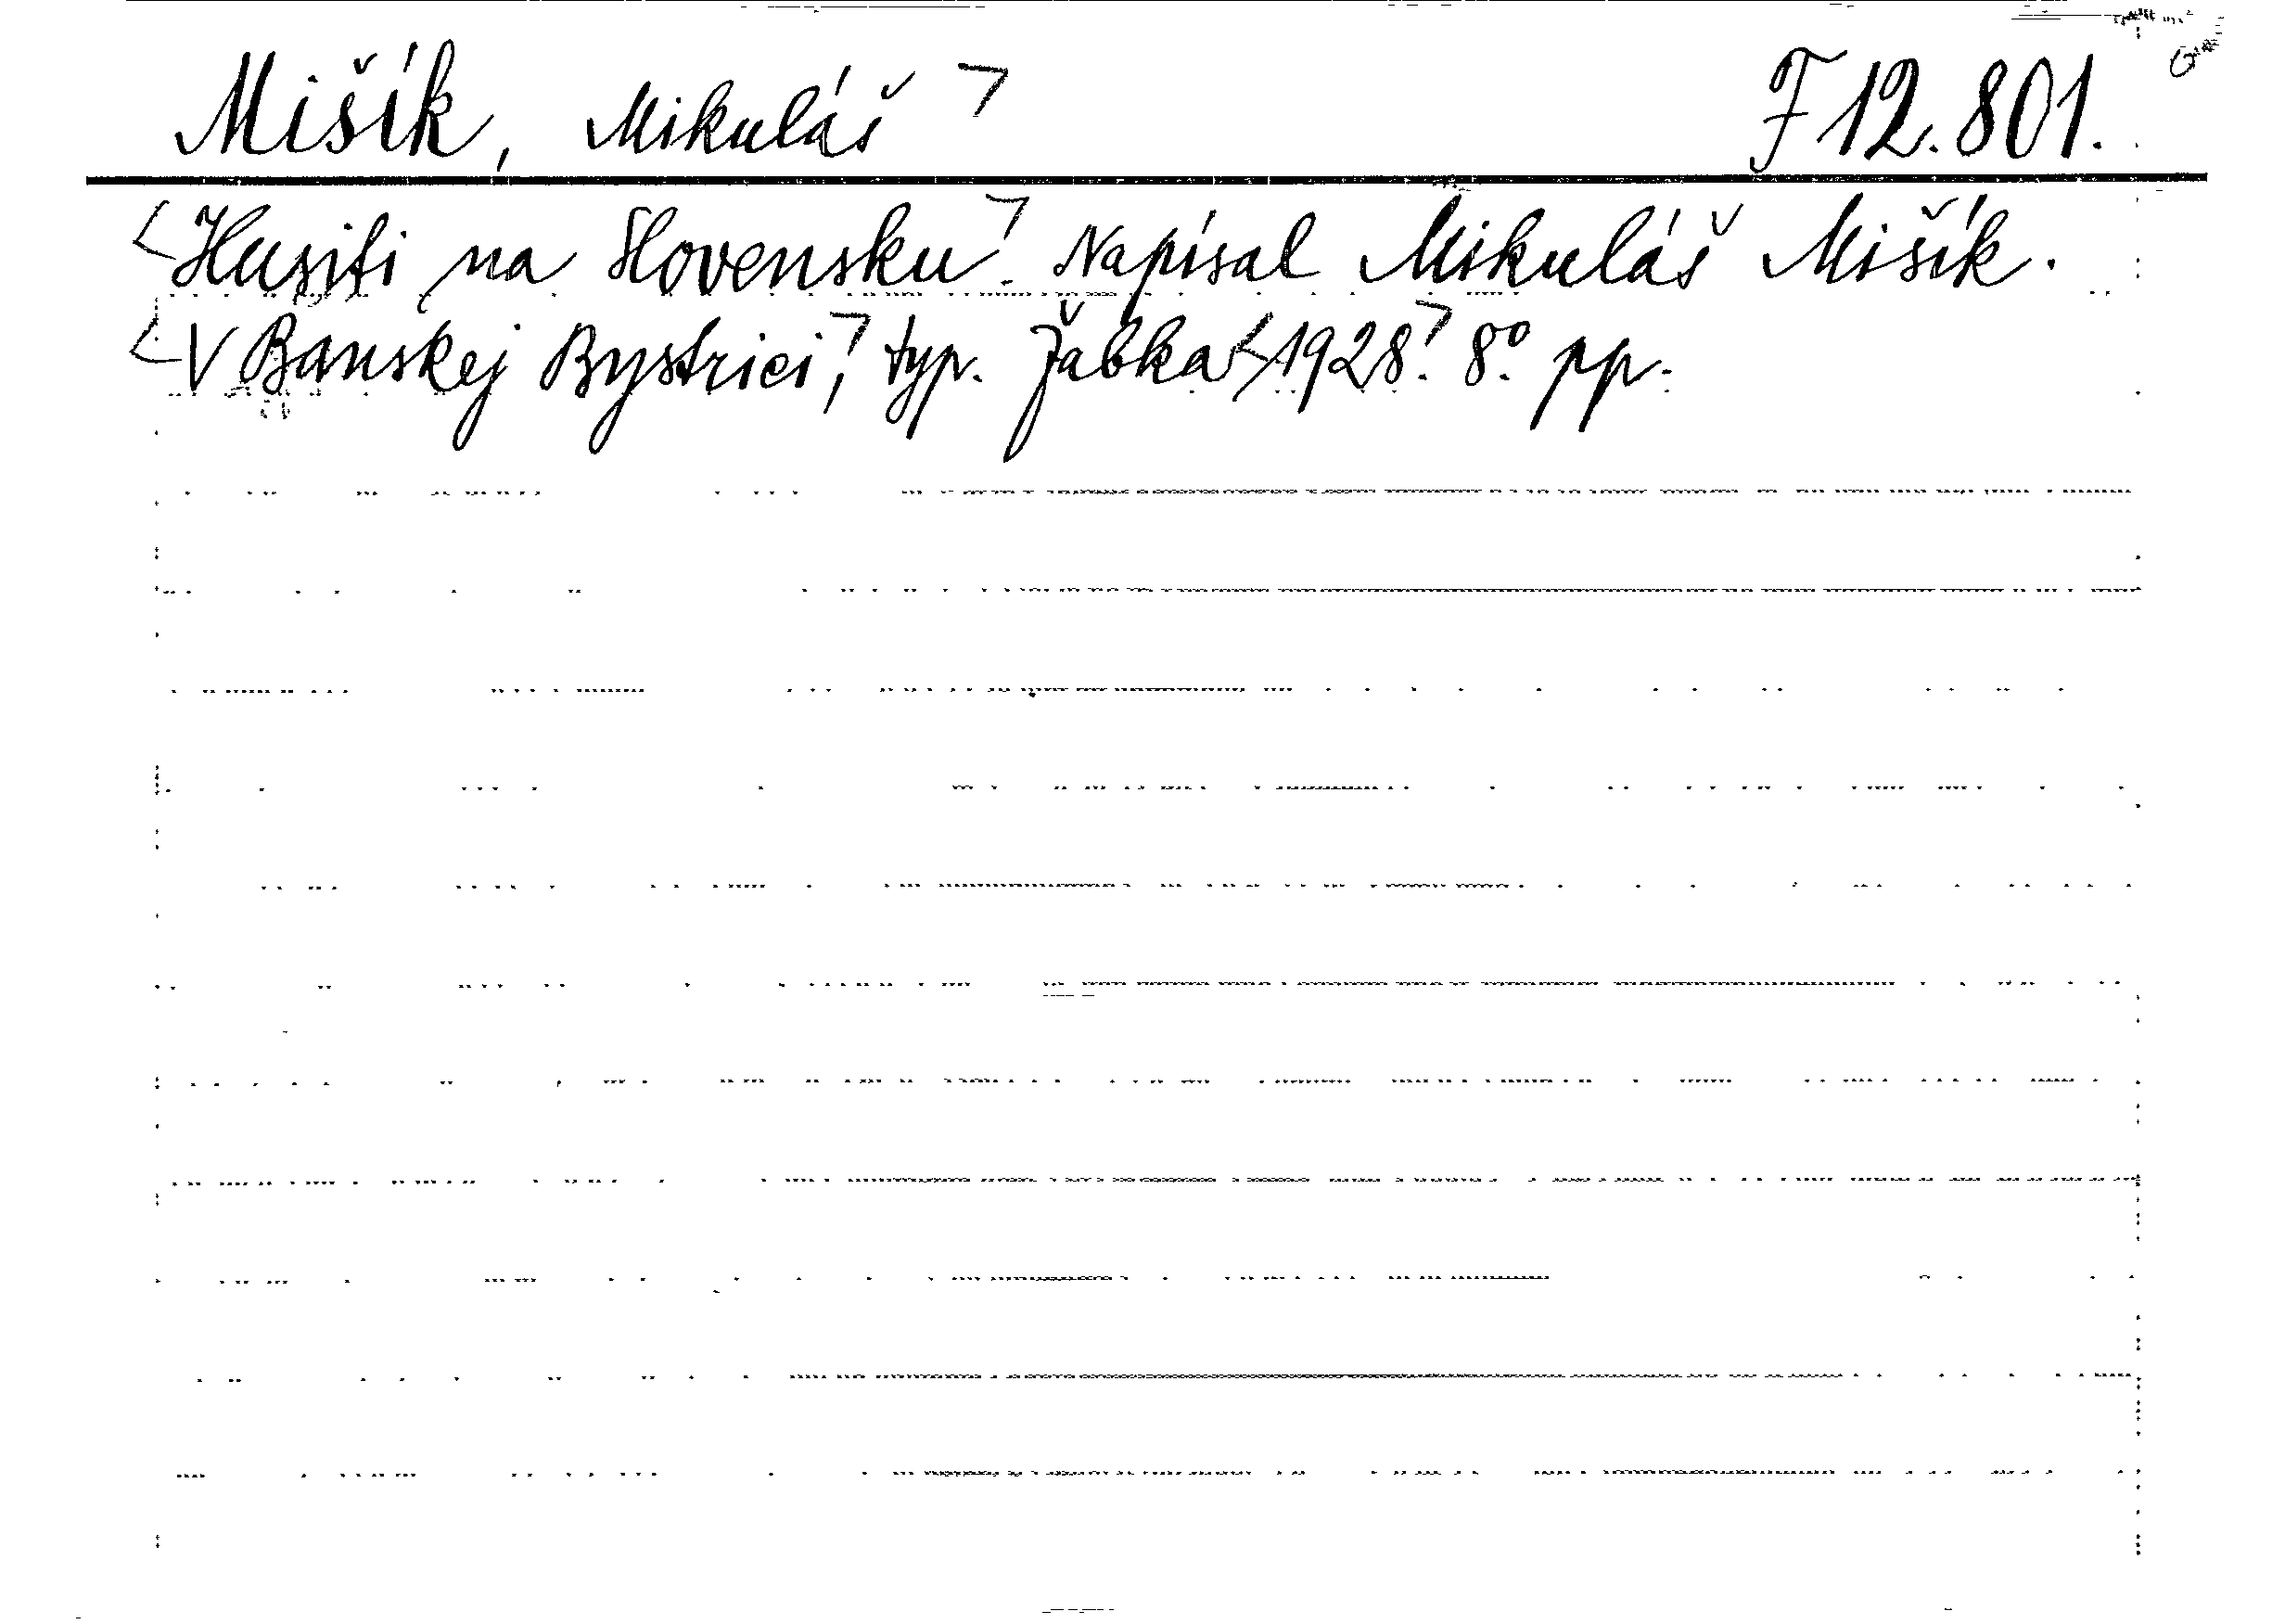 Mišík, Mikuláš ⁊ F 12.801.
<Husiti na Slovensku⁊. Napísal Mikuláš Mišík.
<V Banskej Bystrici⁊, typ. Žabka <1928⁊. 8°. pp.